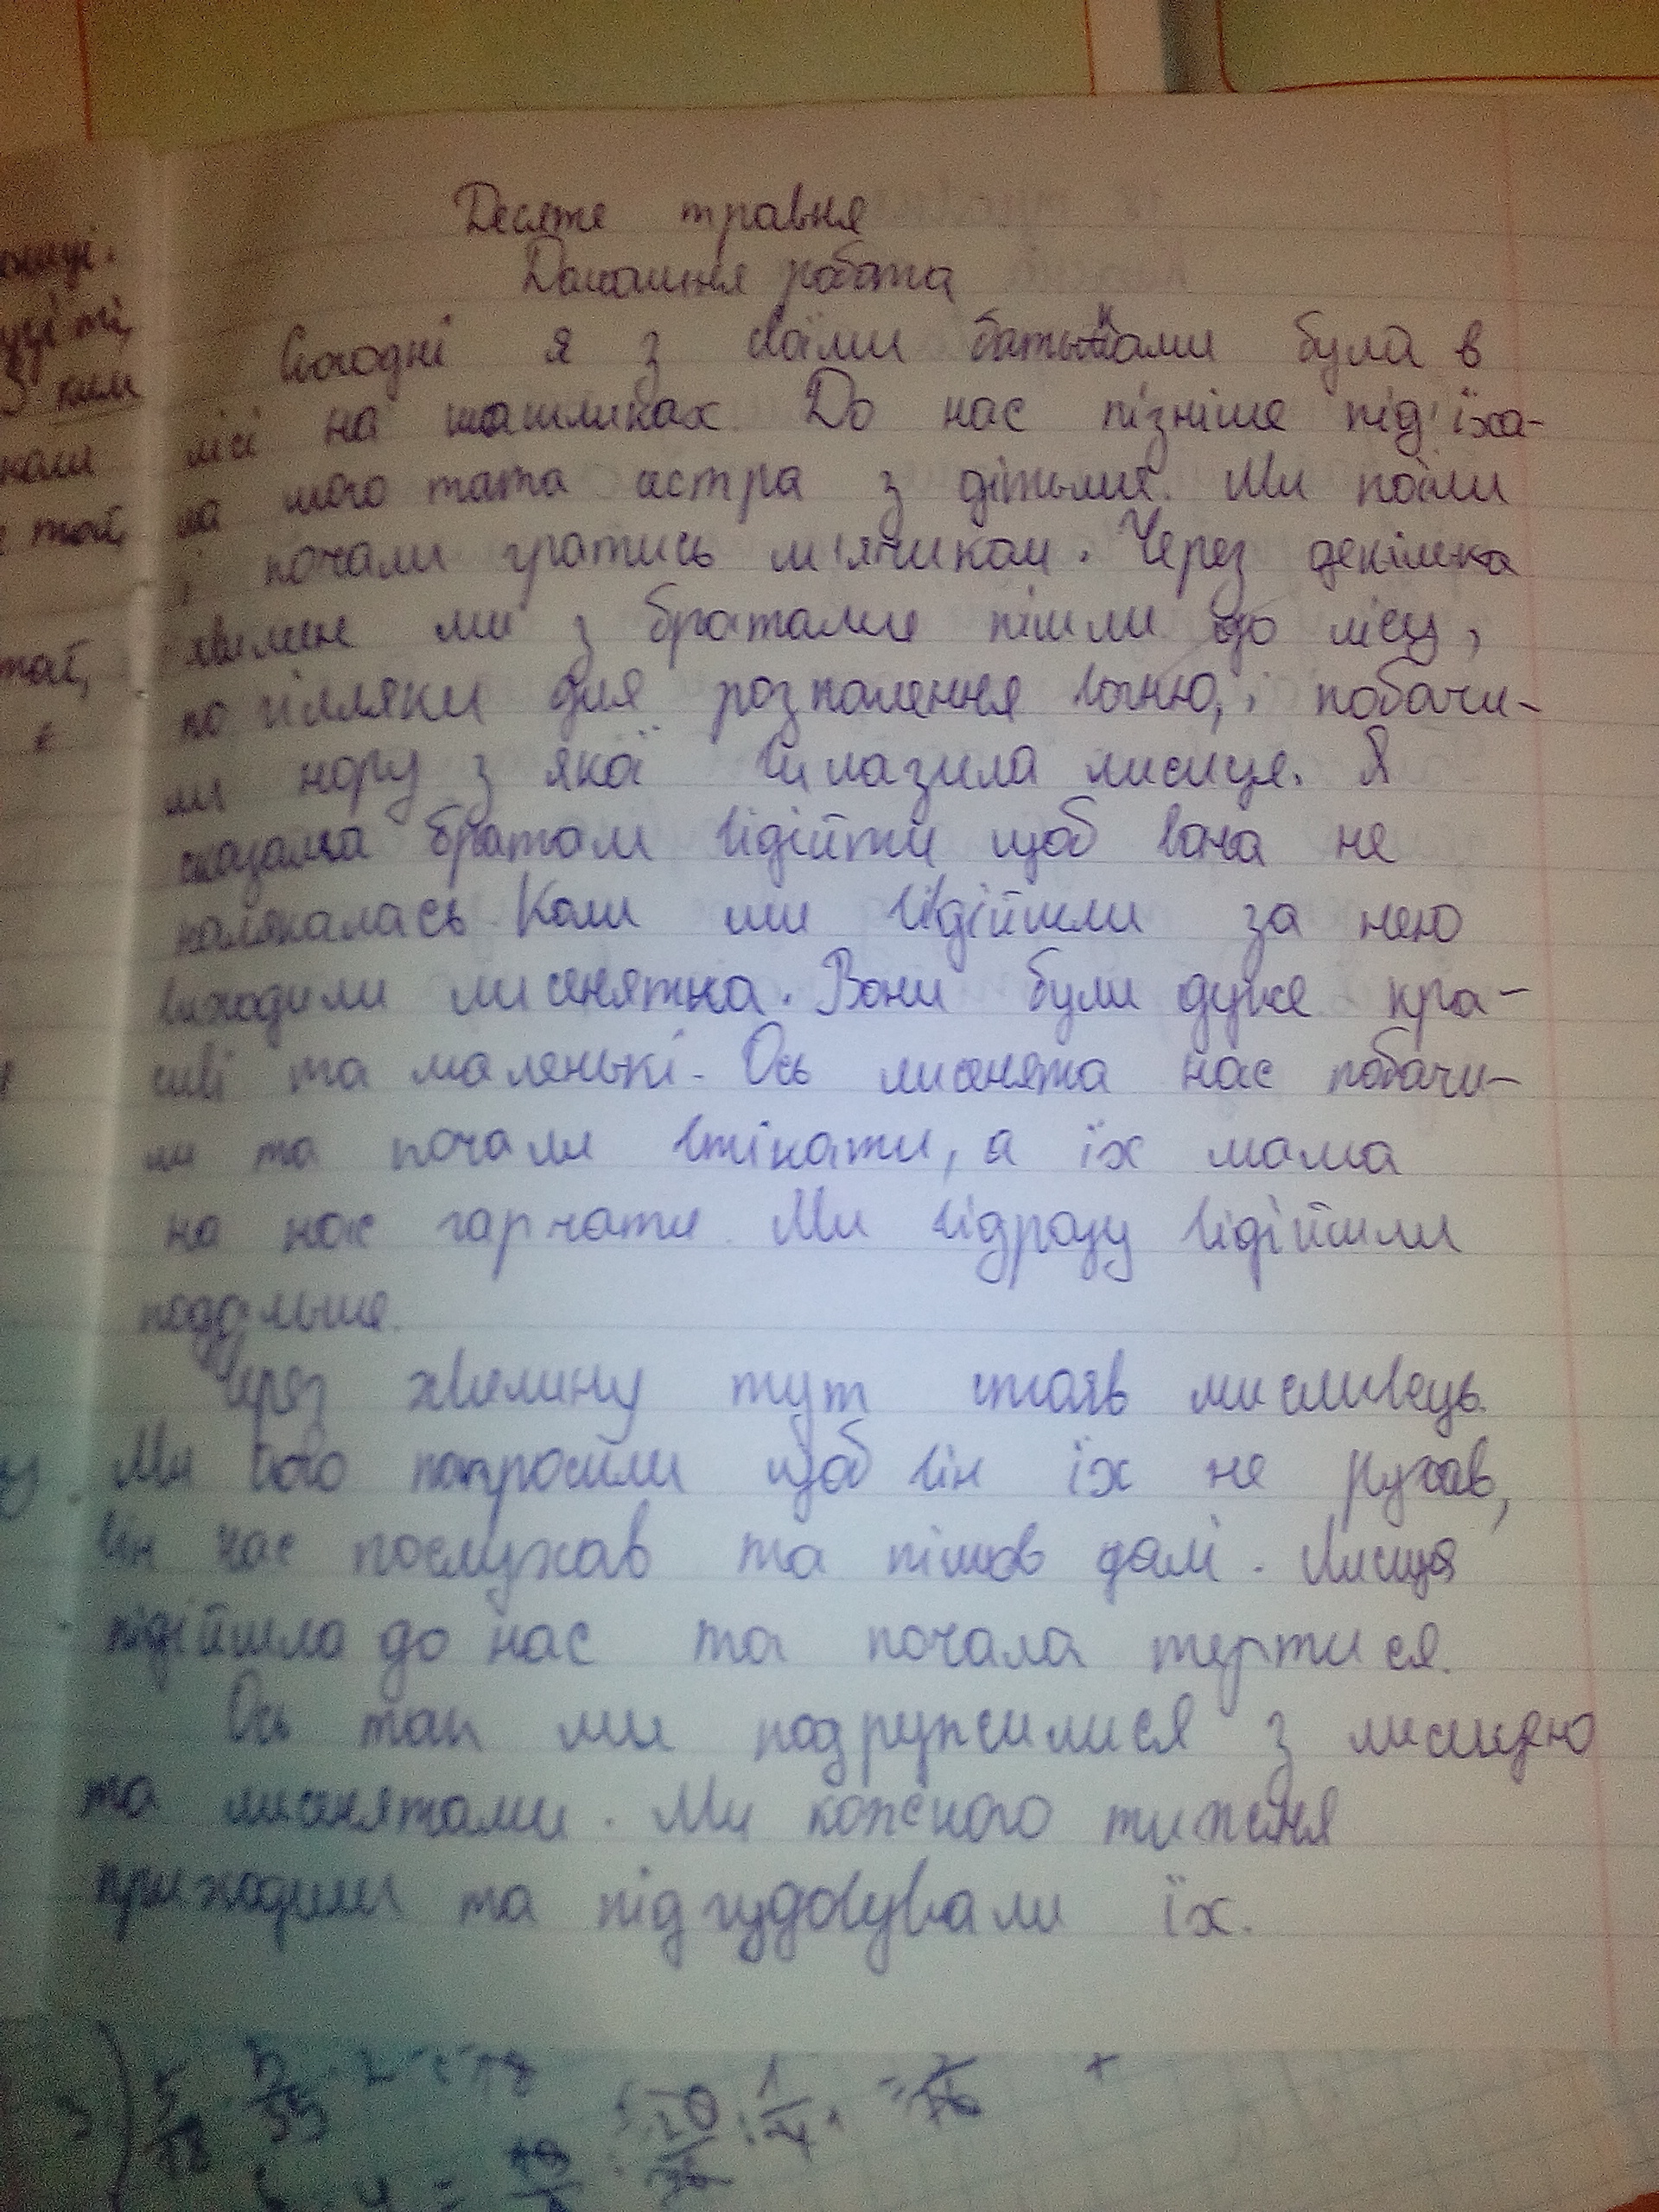 Десяте травня
Домашня робота
Сьогодні я з своїми батьками була в
лісі на шашликах. До нас пізніше під'їха-
ла мого тата сестра з дітьми. Ми поїли
і почали гратись м'ячиком. Через декілька
хвилин ми з братами пішли до лісу,
по гілляки для розпалення вогню, і побачи-
ли нору з якої вилазила лисиця. Я
сказала братам відійти щоб вона не
налякалась. Коли ми відійшли за нею
виходили лисенятка. Вони були дуже кра-
сиві та маленькі. Ось лисенята нас побачи-
ли та почали втікати, а їх мама
на нас гарчати. Ми відразу відійшли
подальше.
Через хвилину тут стояв мисливець.
Ми його попросили щоб він їх не рухав,
він нас послухав та пішов далі. Лисиця
підійшла до нас та почала тертися.
Ось так ми подружилися з лисицею
та лисенятами. Ми кожного тижня
приходили та підгудовували їх.